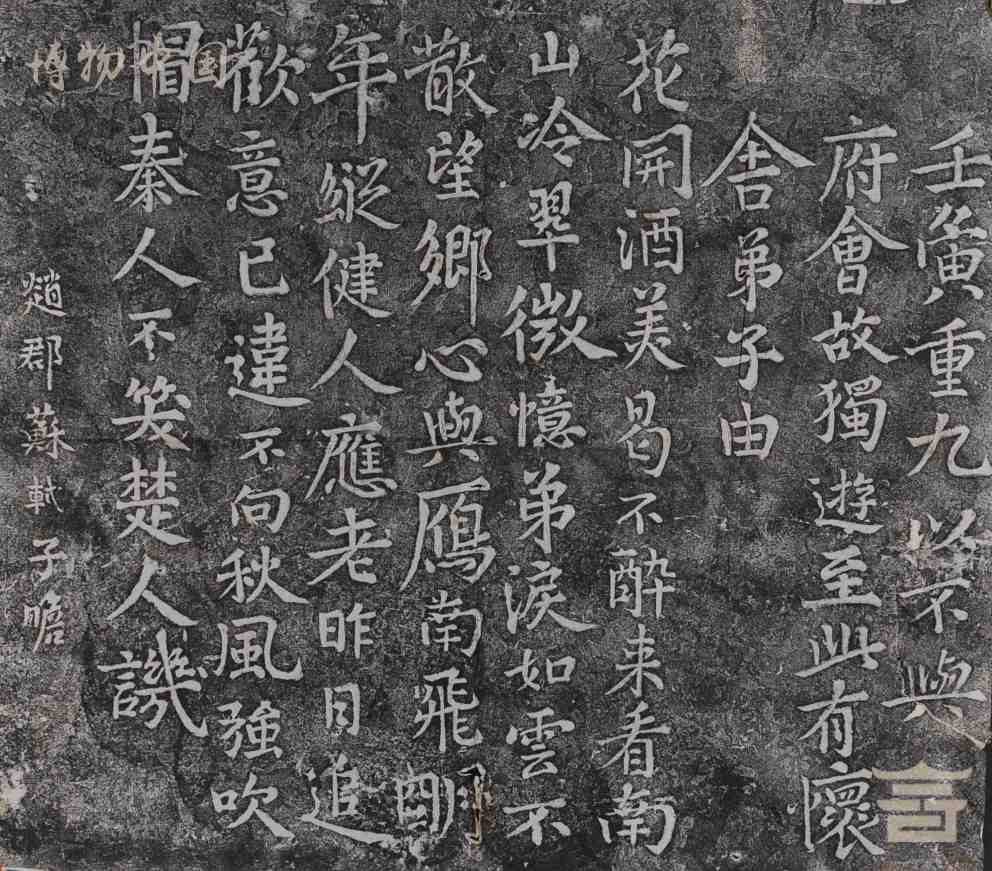 壬寅重九以不與
府會故獨遊至此有懷
舍弟子由
花開酒美曷不醉来看南
山冷翠微憶弟淚如雲不
散望鄉心與鴈南飛明
年縱健人應老昨日追
歡意已違不向秋風強吹
帽秦人不笑楚人譏
趙郡蘇軾子瞻
博物中国